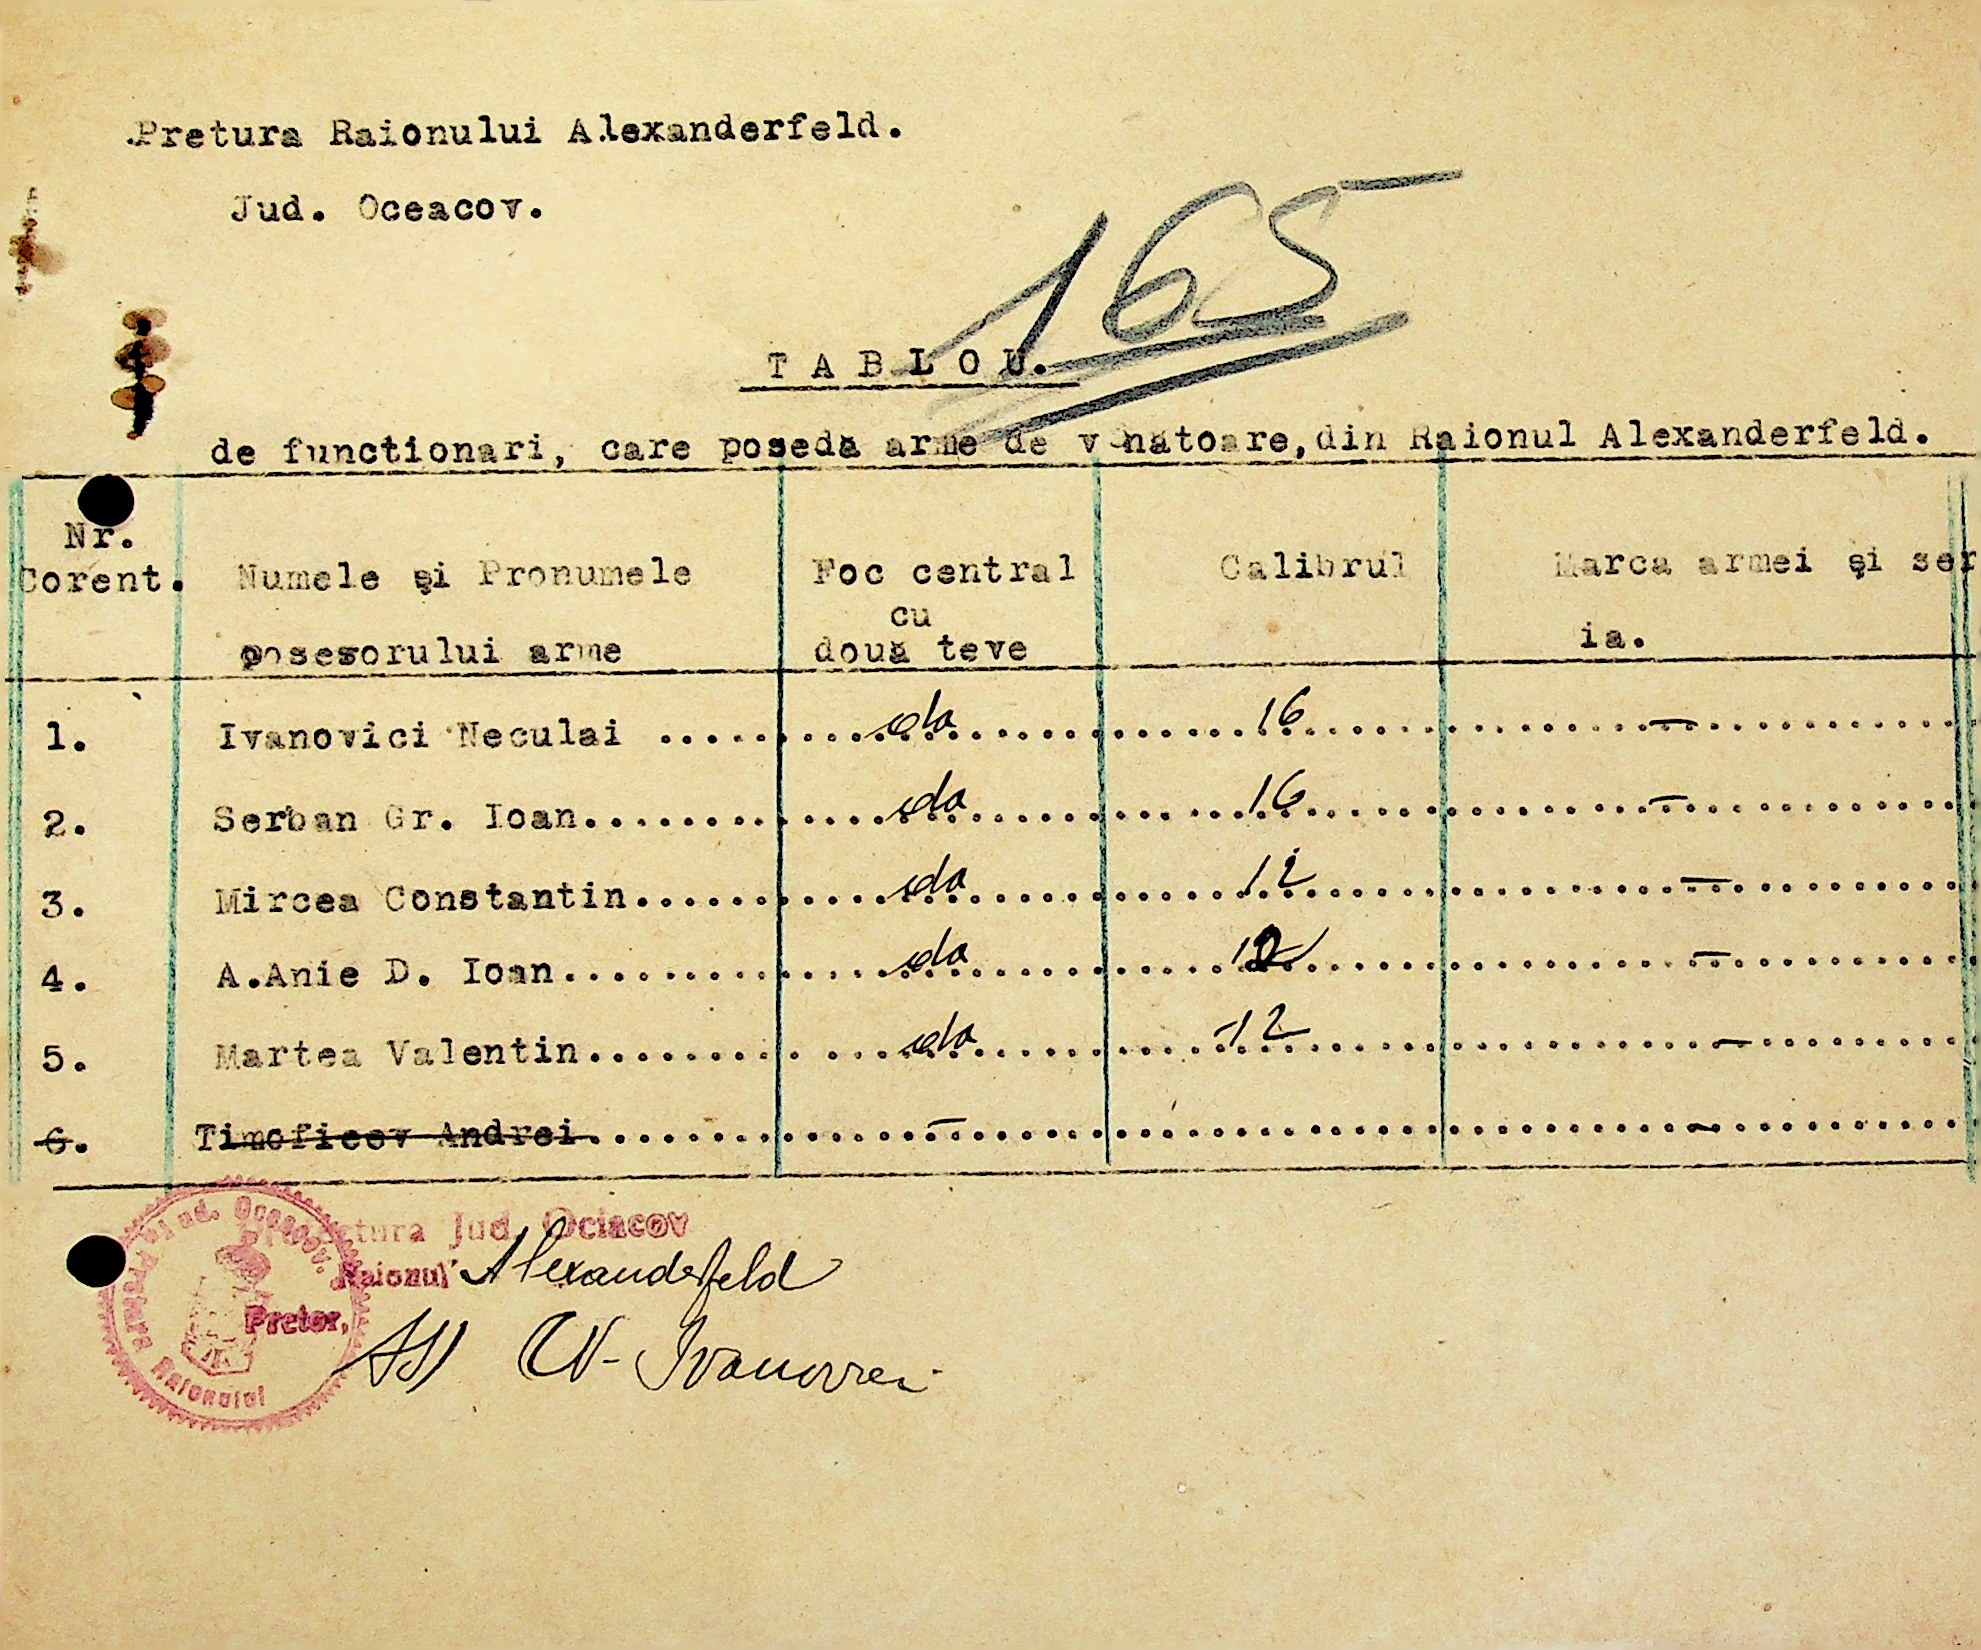 Pretura Raionului Alexanderfeld.
Jud. Oceacov.
165
T A B L O U.
de functionari, care posedă arme de vânătoare, din Raionul Alexanderfeld.
Nr. Corent. Numele şi Pronumele posesorului arme Foc central cu două teve Calibrul Marca armei şi ser ia.
1. Ivanovici Neculai .......... da 16 —
2. Serban Gr. Ioan.......... da 16 —
3. Mircea Constantin.......... da 12 —
4. A.Anie D. Ioan.......... da 12 —
5. Martea Valentin.......... da 12 —
6. Timoficev Andrei.......... — —
Pretura Raionului Jud. Oceacov.
Jud. Ociacov
Raionul Alexanderfeld
Pretor,